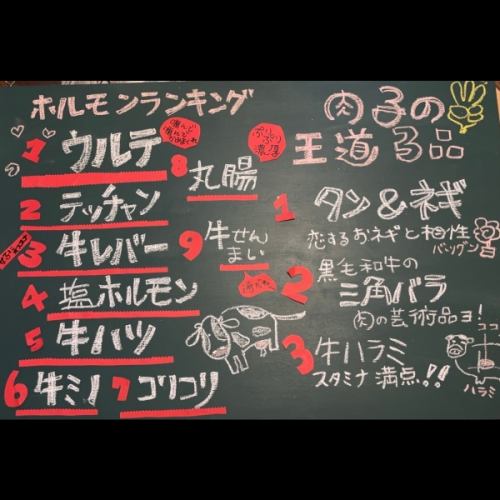 ホルモンランキング
1 ウルテ
2 テッチャン
3 牛レバー
4 塩ホルモン
5 牛ハツ
6 牛ミノ
7 コリコリ
8 丸腸
ぷりぷり
濃厚
9 牛せん
まい
肉子の
王道3品
1 タン&ネギ
恋するおネギと相性
バツグン
2 黒毛和牛の
三角バラ
肉の芸術品ヨ!
3 牛ハラミ
スタミナ満点!!
ココ
ハラミ